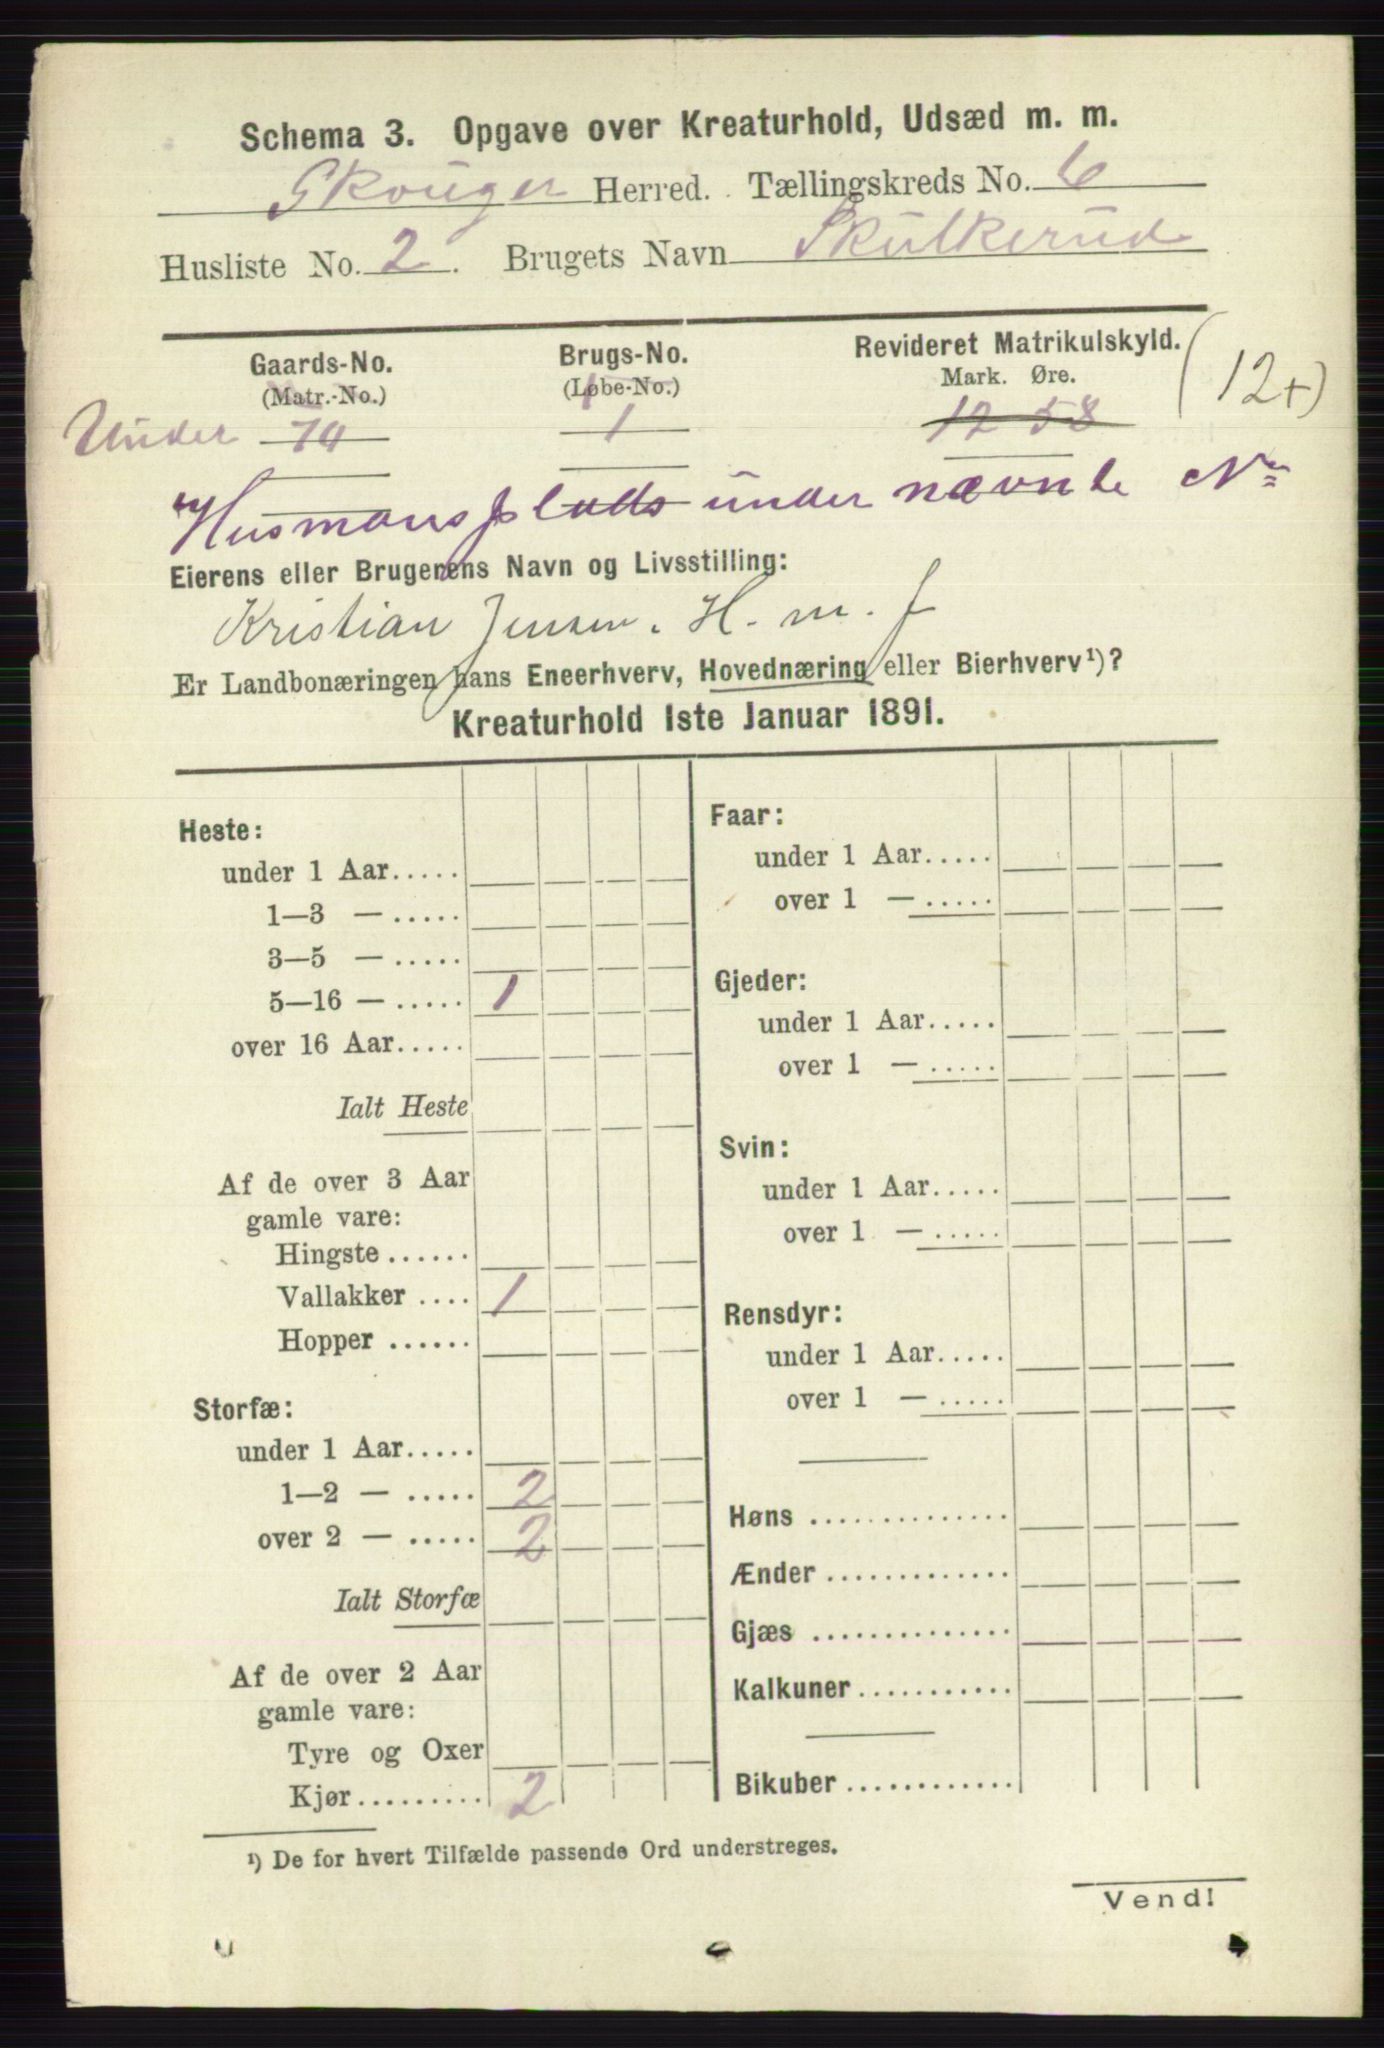 Schema 3. Opgave over Kreaturhold, Udsæd m. m.
Skouger Herred. Tællingskreds No. 6
Husliste No. 2. Brugets Navn Skulkerud
Gaards-No. Brugs-No. Revideret Matrikulskyld.
(Matr.-No.) (Løbe-No.) Mark. Øre.
(12+)
Under 74 1 12 58
Husmansplads under nævnte No
Eierens eller Brugerens Navn og Livsstilling:
Kristian Jensen. H. m. f
Er Landbonæringen hans Eneerhverv, Hovednæring eller Bierhverv¹)?
Kreaturhold 1ste Januar 1891.
Heste:
under 1 Aar.....
1—3 — .....
3—5 — .....
5—16 — ..... 1
over 16 Aar.....
Ialt Heste
Af de over 3 Aar
gamle vare:
Hingste ......
Vallakker .... 1
Hopper ......
Storfæ:
under 1 Aar.....
1—2 — ..... 2
over 2 — ..... 2
Ialt Storfæ
Af de over 2 Aar
gamle vare:
Tyre og Oxer
Kjør......... 2
Faar:
under 1 Aar.....
over 1 — .....
Gjeder:
under 1 Aar.....
over 1 — .....
Svin:
under 1 Aar.....
over 1 — .....
Rensdyr:
under 1 Aar.....
over 1 — .....
Høns ..............
Ænder .............
Gjæs ..............
Kalkuner...........
Bikuber............
¹) De for hvert Tilfælde passende Ord understreges.
Vend!